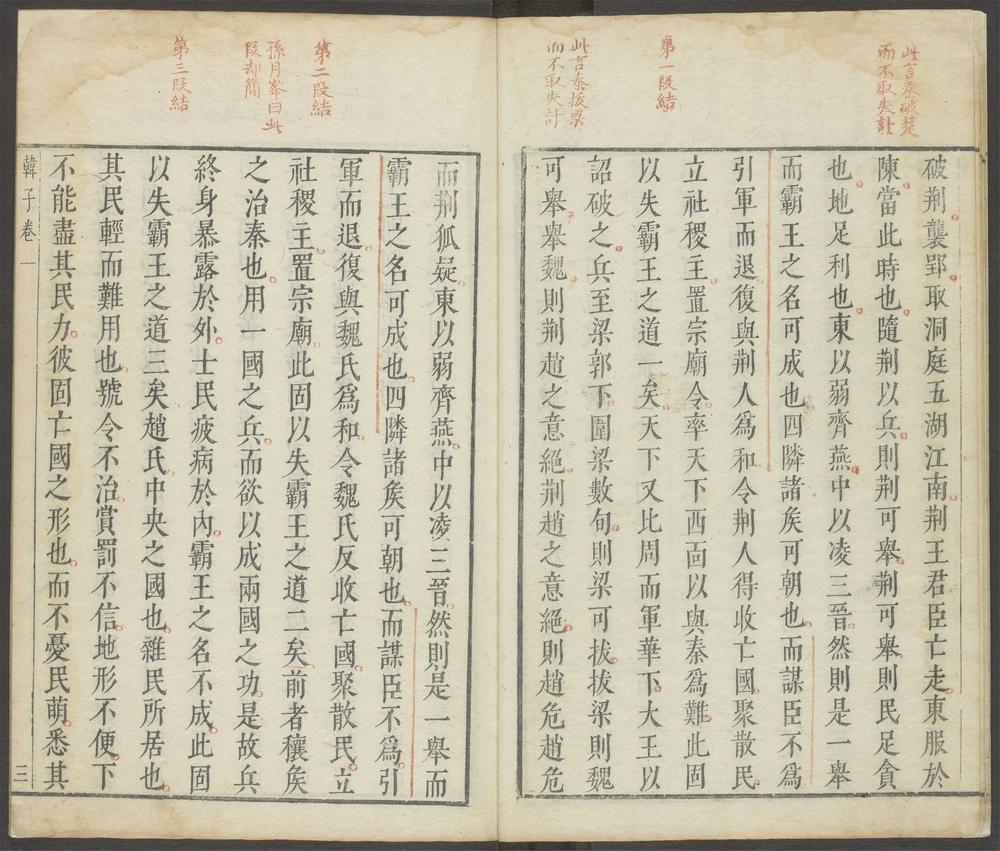 此言秦破楚
而不取失計
第一段結
此言秦拔梁
而不取失計
破荆襲郢取洞庭五湖江南荆王君臣亡走東服於
陳當此時也隨荆以兵則荆可舉荆可舉則民足貪
也地足利也東以弱齊燕中以凌三晉然則是一舉
而霸王之名可成也四隣諸矦可朝也而謀臣不爲
引軍而退復與荆人爲和令荆人得收亡國聚散民
立社稷主置宗廟令率天下西面以與秦爲難此固
以失霸王之道一矣天下又比周而軍華下大王以
詔破之兵至梁郭下圍梁數旬則梁可拔拔梁則魏
可舉舉魏則荆趙之意絕荆趙之意絕則趙危趙危
第二段結
孫月峯曰此
段却簡
第三段結
而荆狐疑東以弱齊燕中以凌三晉然則是一舉而
霸王之名可成也四隣諸矦可朝也而謀臣不爲引
軍而退復與魏氏爲和令魏氏反收亡國聚散民立
社稷主置宗廟此固以失霸王之道二矣前者穰矦
之治秦也用一國之兵而欲以成兩國之功是故兵
終身暴露於外士民疲病於內霸王之名不成此固
以失霸王之道三矣趙氏中央之國也雜民所居也
其民輕而難用也號令不治賞罰不信地形不便下
不能盡其民力彼固亡國之形也而不憂民萌悉其
韓子卷一
三